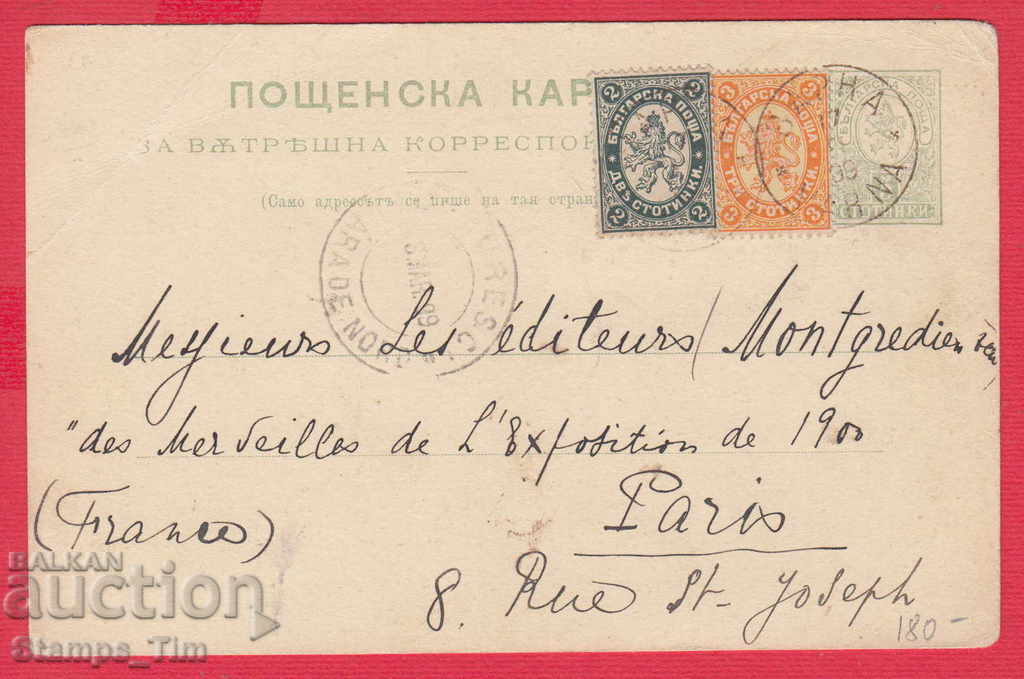 ПОЩЕНСКА КАР
ЗА ВѪТРѢШНА КОРРЕСПОН
(Само адрессътъ се пише на тая стран
2 2
БЪЛГАРСКА ПОЩА
ДВѢ СТОТИНКИ.
2 2
3 3
БЪЛГАРСКА ПОЩА
ТРИ СТОТИНКИ.
3 3
СТОТИНКИ
99
MAR 99
Messieurs Les éditeurs (Montgredien
"des Merveilles de L'Exposition de 1900
Paris
(France)
8. Rue St. Joseph
180-
BALKAN
auction
Stamps_Tim